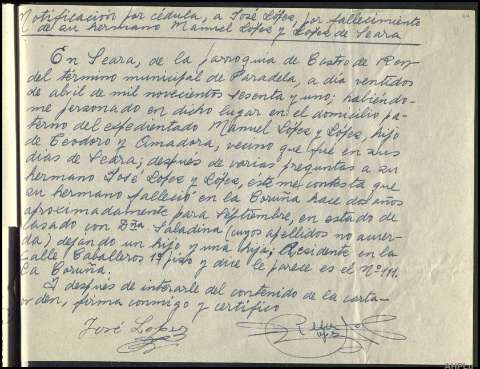 Notificación por cédula, a José López, por fallecimiento
de su hermano Manuel López y López de Seara
En Seara, de la parroquia de Castro de Rey
del término municipal de Paradela, a día ventidos
de abril de mil novecientos sesenta y uno; habiéndo-
me personado en dicho lugar en el domicilio pa-
terno del expedientado Manuel López y López, hijo
de Teodoro y Amadora, vecino que fué en sus
dias de Seara; después de varias preguntas a su
hermano José López y López, éste me contesta que
su hermano falleció en La Coruña hace dos años
aproximadamente para Septiembre, en estado de
casado con Dña Saladina (cuyos apellidos no acuer-
da) dejando un hijo y una hija; Residente en la
Calle Caballeros 1º piso y dice le parece es el Nº 111.
La Coruña.
Y después de interarle del contenido de la carta-
orden, firma conmigo y certifico
José López